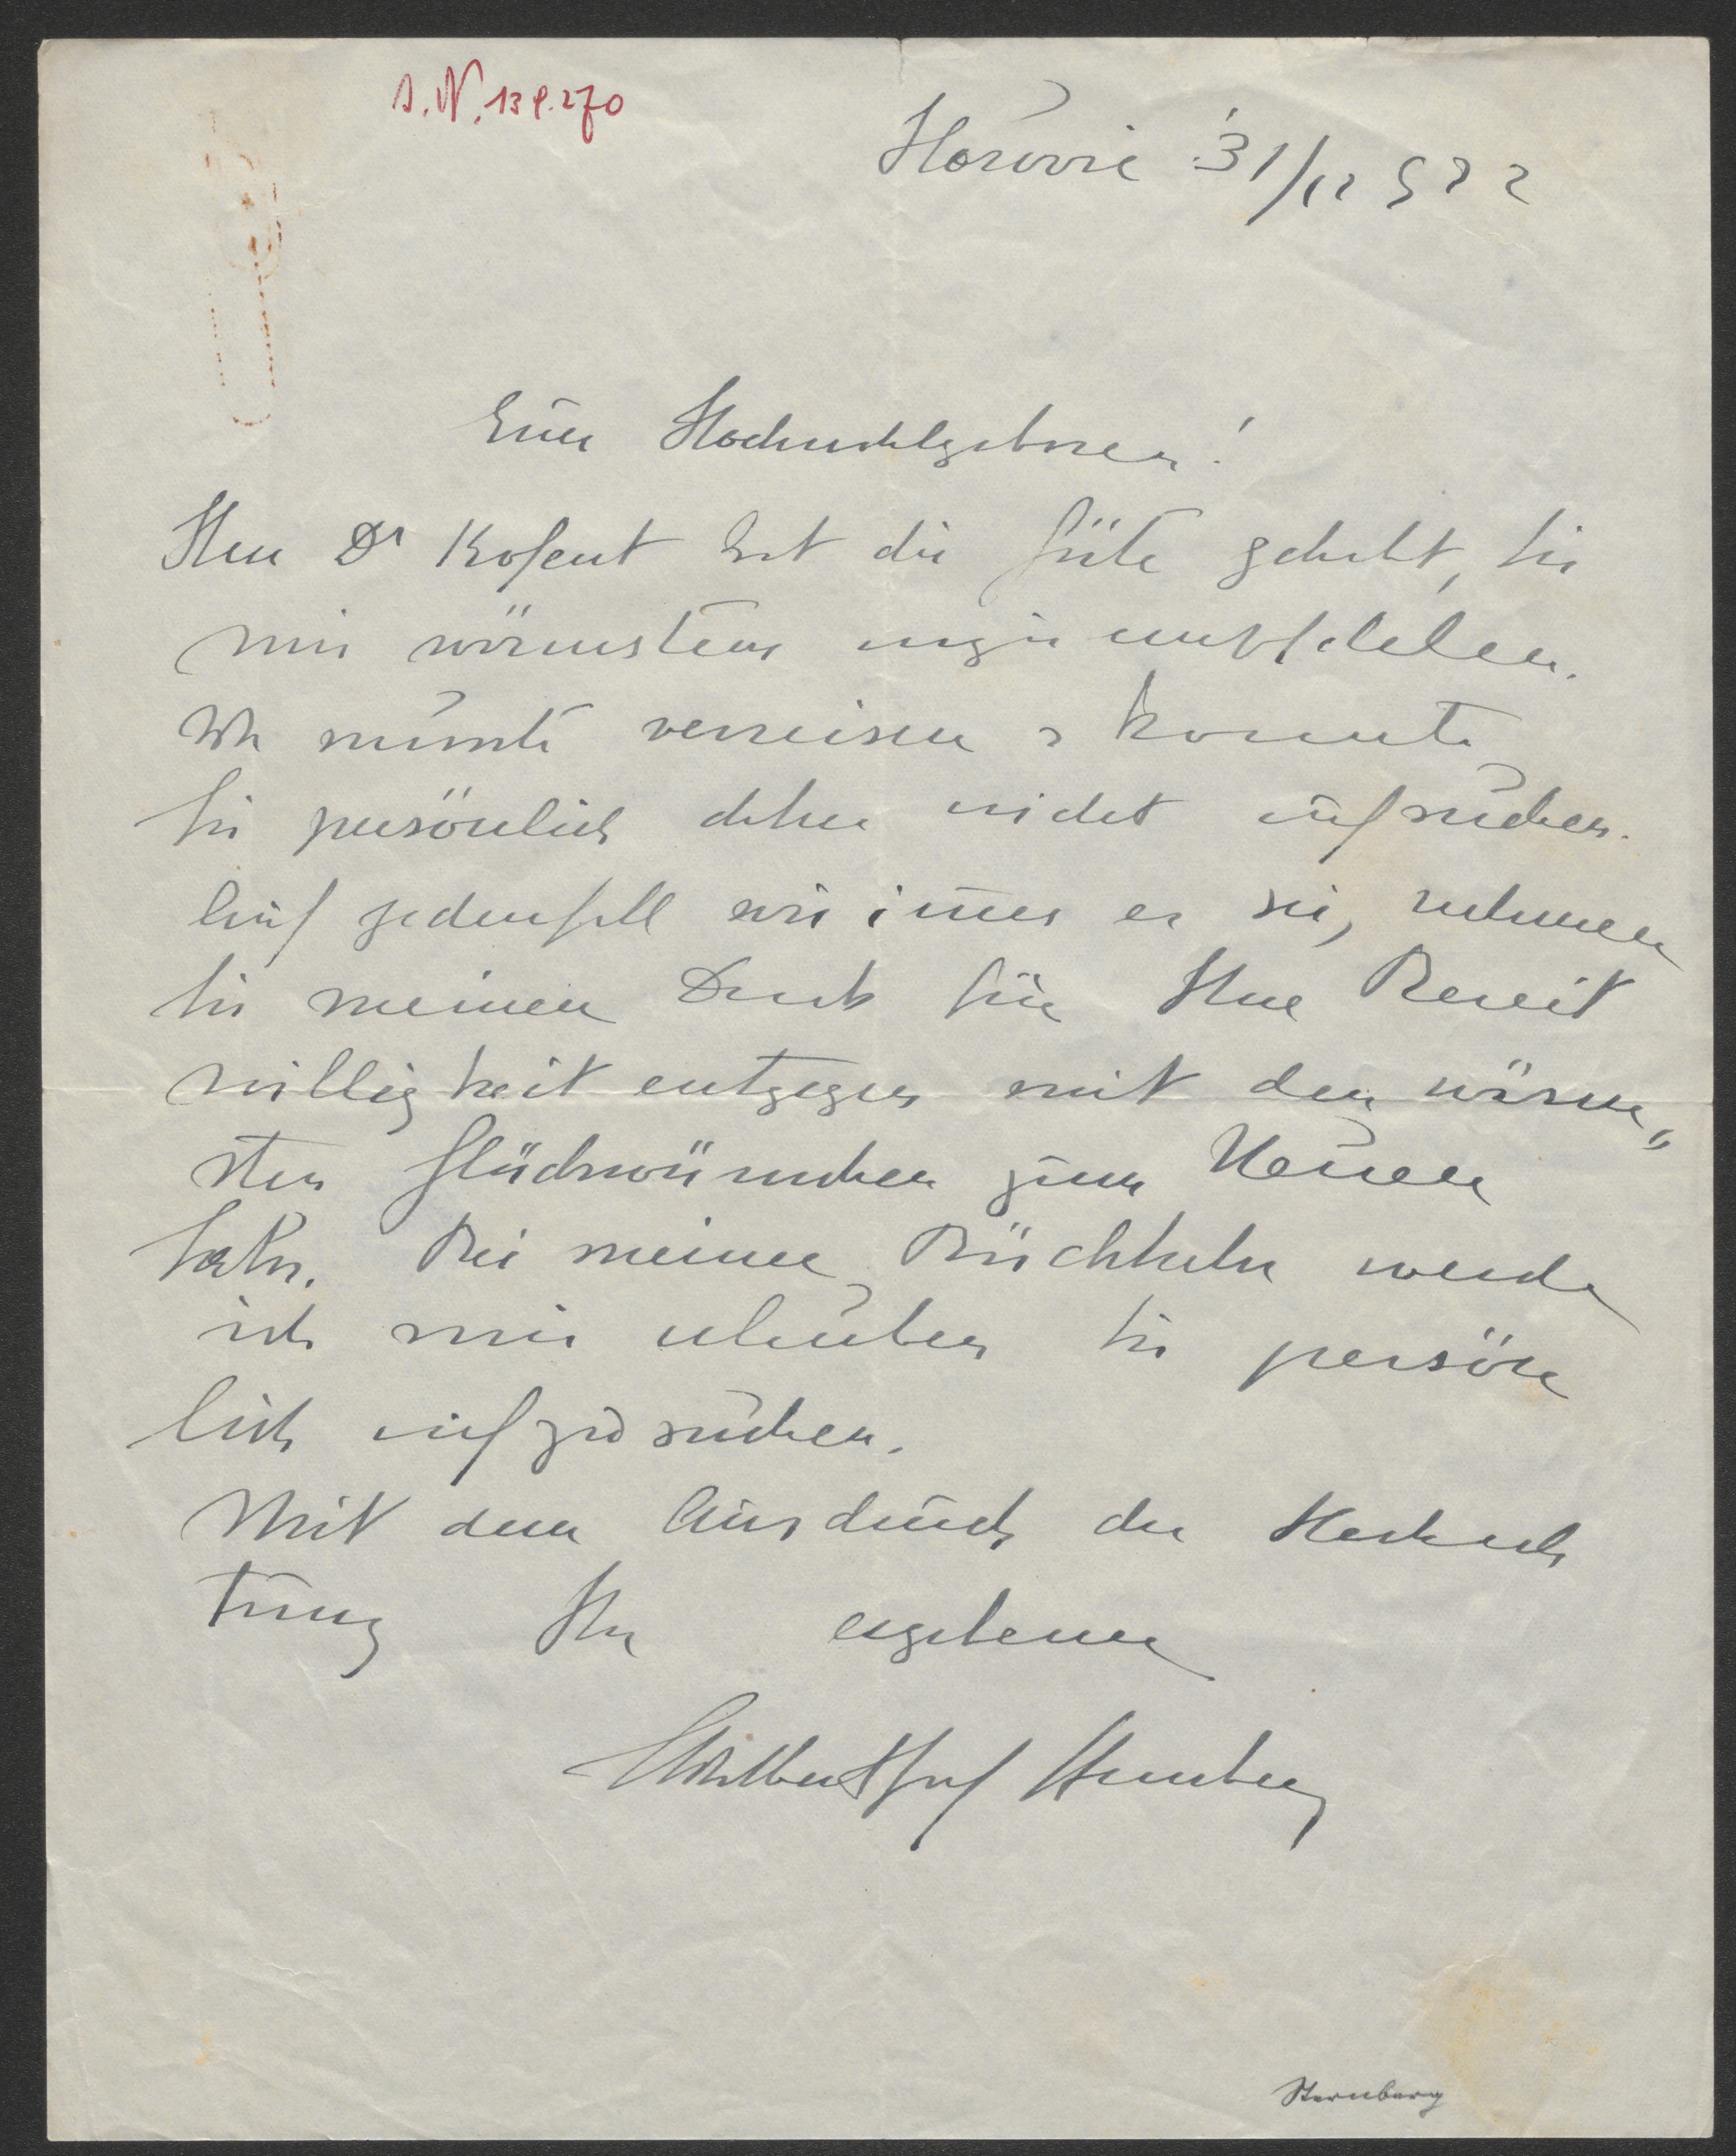 I.N. 138.270
Hořovic 31/12 922
Euer Hochwohlgeboren!
Herr Dr Kosent hat die Güte gehabt, Sie
mir wärmstens anzuempfehlen.
Ich musste verreisen & konnte
Sie persönlich daher nicht aufsuchen.
Auf jedenfall wie immer es sei, nehmen
Sie meinen Dank für Ihre Bereit
willigkeit entgegen mit den wärm„
sten Glückwünschen zum Neuen
Jahr. Bei meiner Rückkehr werde
ich mir erlauben Sie persön
lich aufzusuchen.
Mit dem Ausdruck der Hochach
tung Ihr ergebener
Adalbert Graf Sternberg
Sternberg